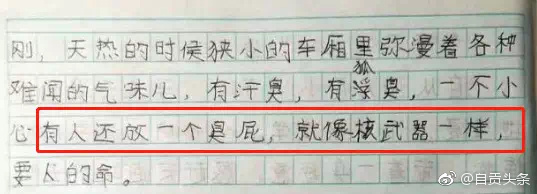 刚，天热的时候狭小的车厢里弥漫着各种
难闻的气味儿，有汗臭，有狐臭，一不小
心有人还放一个臭屁，就像核武器一样，
要人的命。
@自贡头条